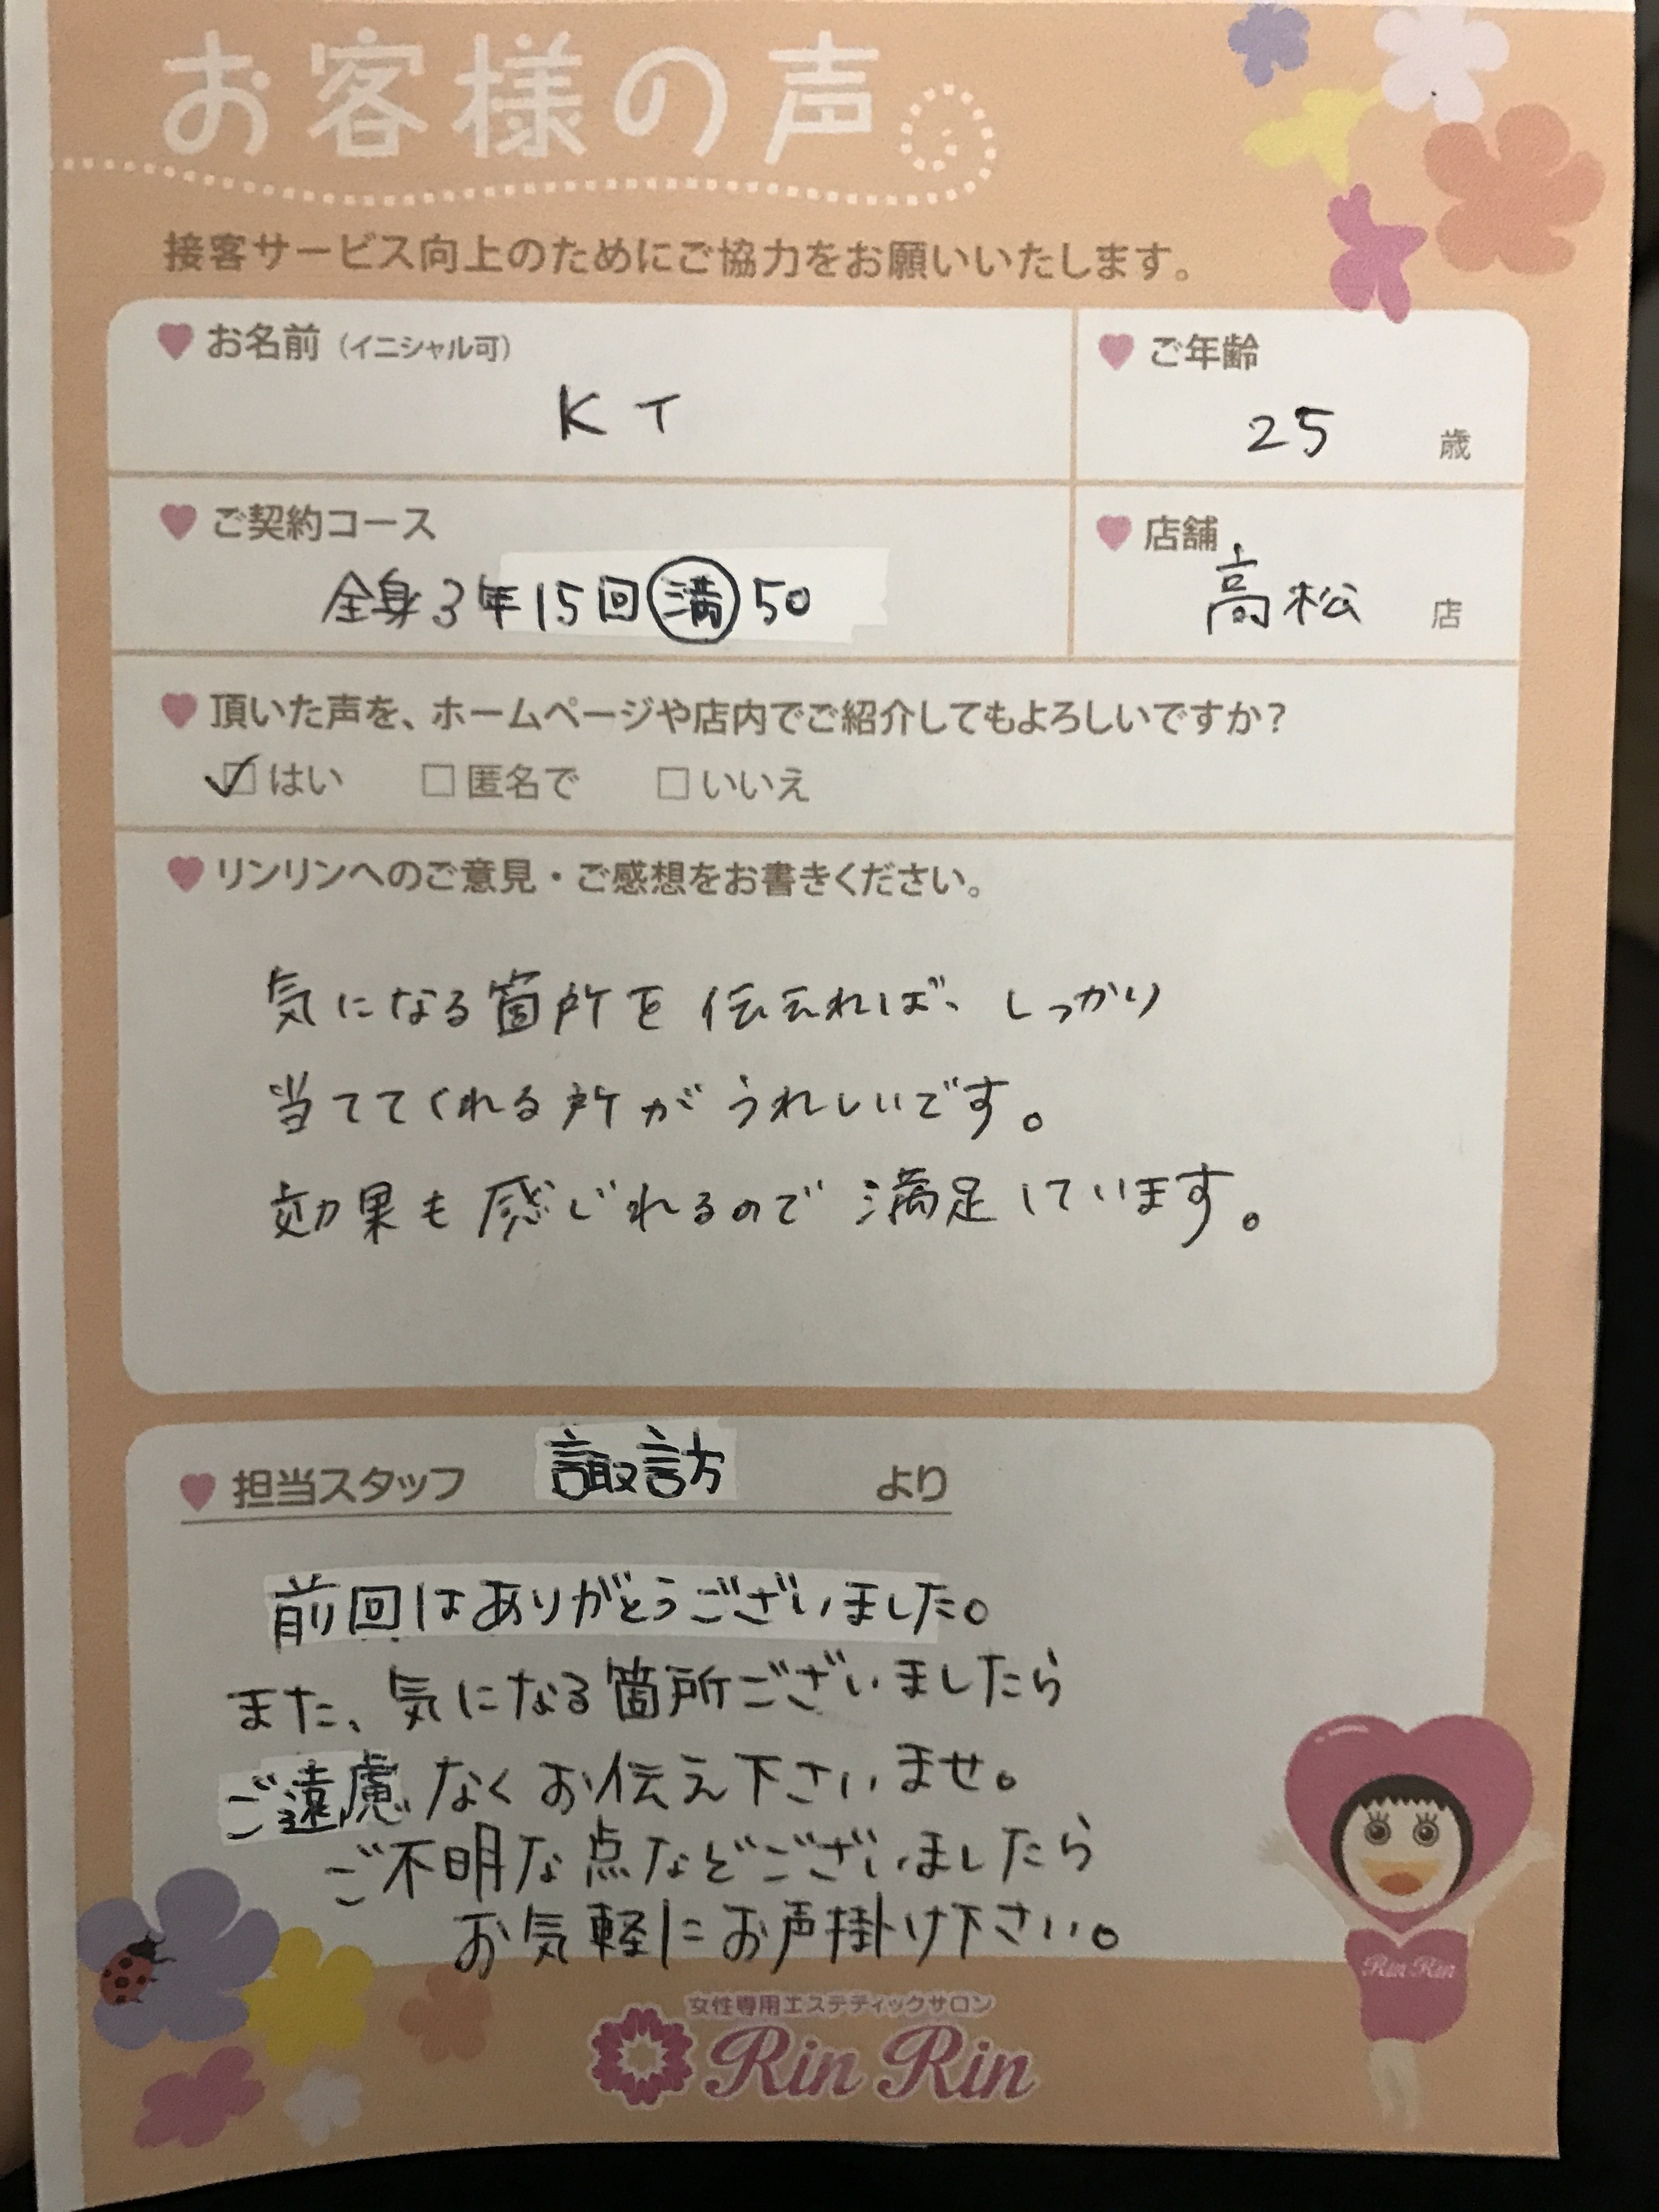 お客様の声
接客サービス向上のためにご協力をお願いいたします。
お名前（イニシャル可）
K T
ご年齢
25 歳
ご契約コース
全身3年15回満50
店舗
高松 店
頂いた声を、ホームページや店内でご紹介してもよろしいですか？
はい 匿名で いいえ
リンリンへのご意見・ご感想をお書きください。
気になる箇所を伝えれば、しっかり
当ててくれる所がうれしいです。
効果も感じれるので満足しています。
担当スタッフ 諏訪 より
前回はありがとうございました。
また、気になる箇所ございましたら
ご遠慮なくお伝え下さいませ。
ご不明な点などございましたら
お気軽にお声掛け下さい。
Rin Rin
女性専用エステティックサロン
Rin Rin